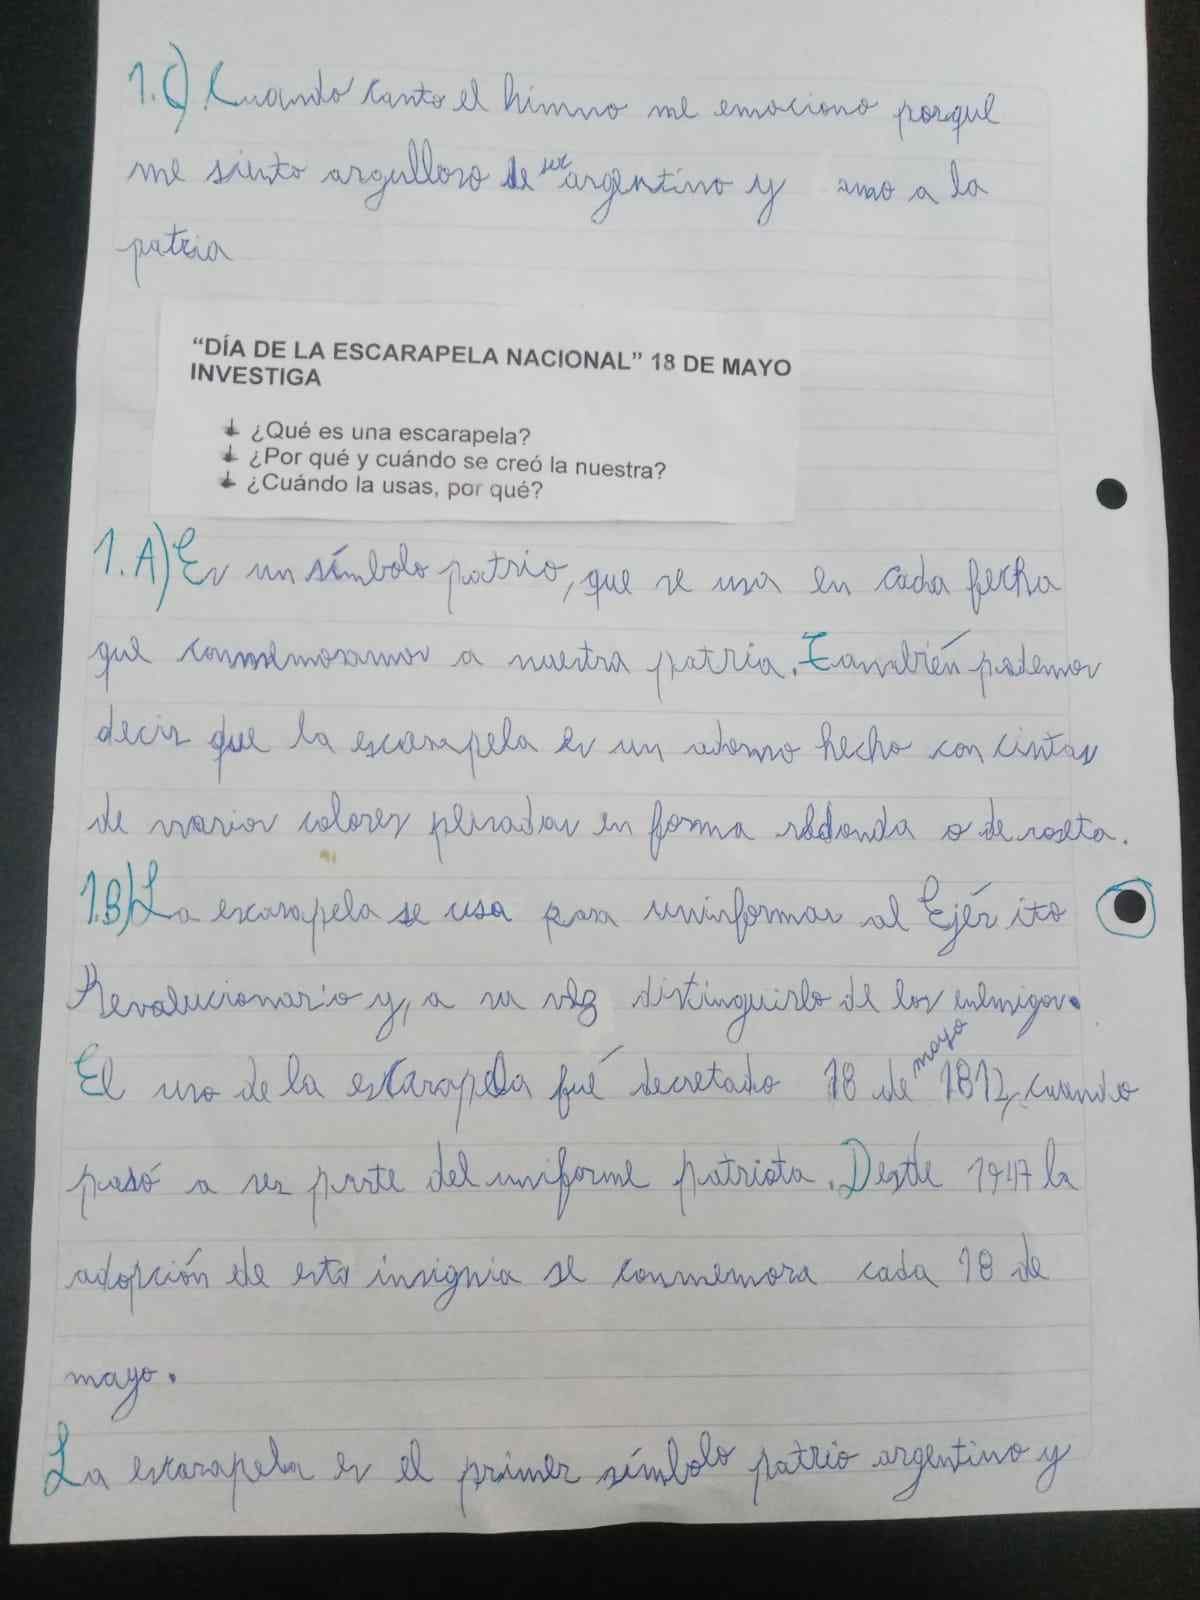 1.C) Cuando canto el himno me emociono porque
me siento argulloso de ser argentino y amo a la
patria
“DÍA DE LA ESCARAPELA NACIONAL” 18 DE MAYO
INVESTIGA
¿Qué es una escarapela?
¿Por qué y cuándo se creó la nuestra?
¿Cuándo la usas, por qué?
1.A) Es un símbolo patrio, que se usa en cada fecha
que conmemoramos a nuestra patria. También podemos
decir que la escarapela es un adorno hecho con cintas
de varios colores plisadas en forma redonda o de roseta.
1.B) La escarapela se usa para uninformar al Ejército
Revolucionario y, a su vez distinguirlo de los enemigos.
El uso de la escarapela fué decretado 18 de mayo 1812, cuando
pasó a ser parte del uniforme patriota. Desde 1947 la
adopción de esta insignia se conmemora cada 18 de
mayo.
La escarapela es el primer símbolo patrio argentino y